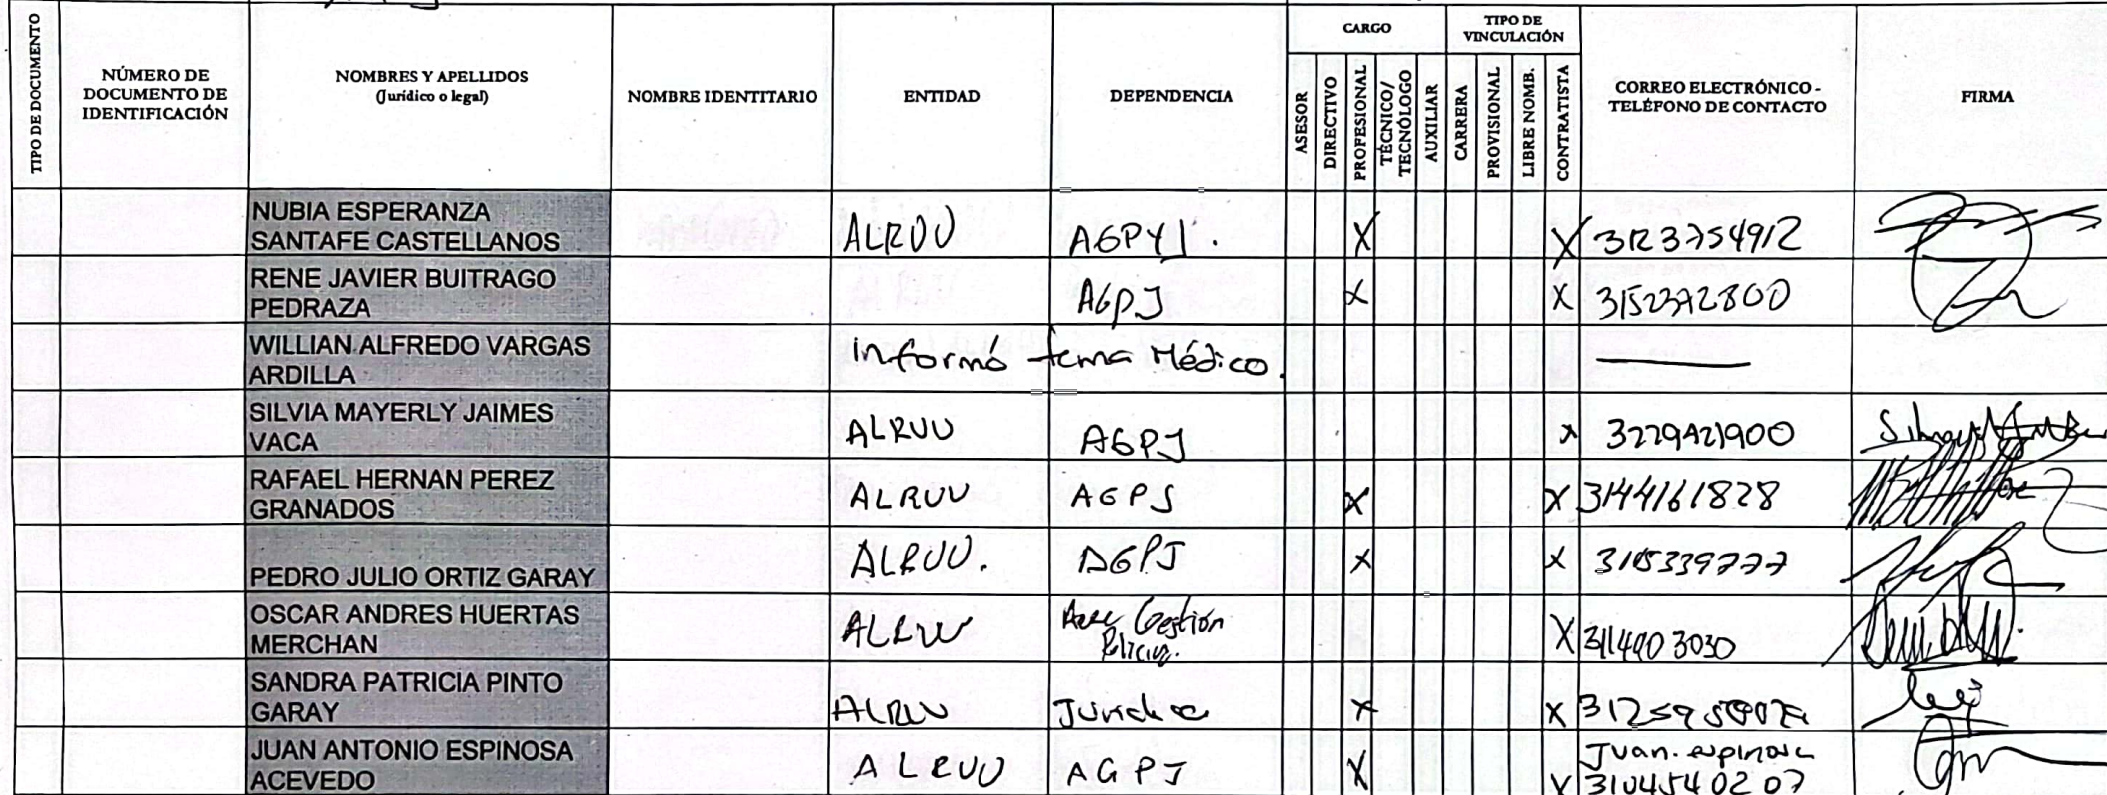 TIPO DE DOCUMENTO
NÚMERO DE
DOCUMENTO DE
IDENTIFICACIÓN
NOMBRES Y APELLIDOS
(Jurídico o legal)
NOMBRE IDENTITARIO
ENTIDAD
DEPENDENCIA
CARGO
ASESOR
DIRECTIVO
PROFESIONAL
TÉCNICO/
TECNÓLOGO
AUXILIAR
TIPO DE
VINCULACIÓN
CARRERA
PROVISIONAL
LIBRE NOMB.
CONTRATISTA
CORREO ELECTRÓNICO -
TELÉFONO DE CONTACTO
FIRMA
NUBIA ESPERANZA
SANTAFE CASTELLANOS
ALRUU AGPYJ. X X 3123754912
RENE JAVIER BUITRAGO
PEDRAZA
AGPJ X X 3152372800
WILLIAN ALFREDO VARGAS
ARDILLA
informó tema Médico.
SILVIA MAYERLY JAIMES
VACA
ALRUU AGPJ X 3229421900
RAFAEL HERNAN PEREZ
GRANADOS
ALRUU AGPJ X X 3144161828
PEDRO JULIO ORTIZ GARAY
ALRUU. AGPJ X X
OSCAR ANDRES HUERTAS
MERCHAN
ALRUU Area Gestión
Policiva.
X 3114903030
SANDRA PATRICIA PINTO
GARAY
ALRUU Juridica X X
JUAN ANTONIO ESPINOSA
ACEVEDO
ALRUU AGPJ X X
Juan.espinosa
3104540207